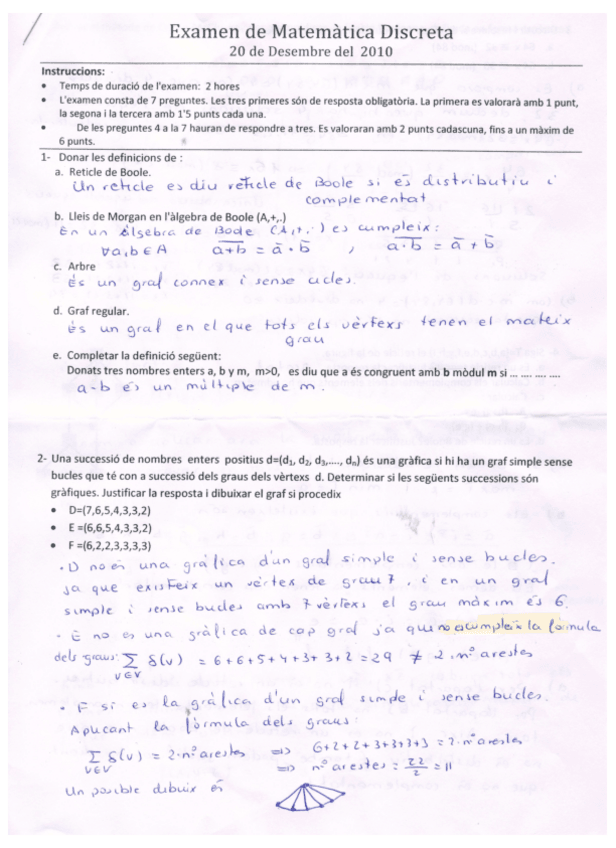 Examen de Matemàtica Discreta
20 de Desembre del 2010
Instruccions:
• Temps de duració de l'examen: 2 hores
• L'examen consta de 7 preguntes. Les tres primeres són de resposta obligatòria. La primera es valorarà amb 1 punt,
la segona i la tercera amb 1'5 punts cada una.
• De les preguntes 4 a la 7 hauran de respondre a tres. Es valoraran amb 2 punts cadascuna, fins a un màxim de
6 punts.
1- Donar les definicions de :
a. Reticle de Boole.
Un reticle es diu reticle de Boole si és distributiu i
complementat
b. Lleis de Morgan en l'àlgebra de Boole (A,+,.)
En un àlgebra de Boole (A,+,·) es cumpleix:
∀a,b ∈ A   \overline{a+b} = ā · b̄ , \overline{a·b} = ā + b̄
c. Arbre
És un graf connex i sense cicles.
d. Graf regular.
És un graf en el que tots els vèrtexs tenen el mateix
grau
e. Completar la definició següent:
Donats tres nombres enters a, b y m, m>0, es diu que a és congruent amb b mòdul m si ... .... .... ....
a-b és un múltiple de m.
2- Una successió de nombres enters positius d=(d₁, d₂, d₃,...., dₙ) és una gràfica si hi ha un graf simple sense
bucles que té con a successió dels graus dels vèrtexs d. Determinar si les següents successions són
gràfiques. Justificar la resposta i dibuixar el graf si procedix
• D=(7,6,5,4,3,3,2)
• E =(6,6,5,4,3,3,2)
• F =(6,2,2,3,3,3,3)
· D no és una gràfica d'un graf simple i sense bucles.
ja que existeix un vèrtex de grau 7, i en un graf
simple i sense bucles amb 7 vèrtexs el grau màxim és 6.
· E no es una gràfica de cap graf ja que no acumpleix la fòrmula
dels graus: Σ δ(v) = 6+6+5+4+3+3+2 = 29 ≠ 2·nº arestes
v∈V
· F si es la gràfica d'un graf simple i sense bucles.
Aplicant la fòrmula dels graus:
Σ δ(v) = 2·nº arestes ⟹ 6+2+2+3+3+3+3 = 2·nº arestes
v∈V ⟹ nº arestes = 22/2 = 11
Un possible dibuix és